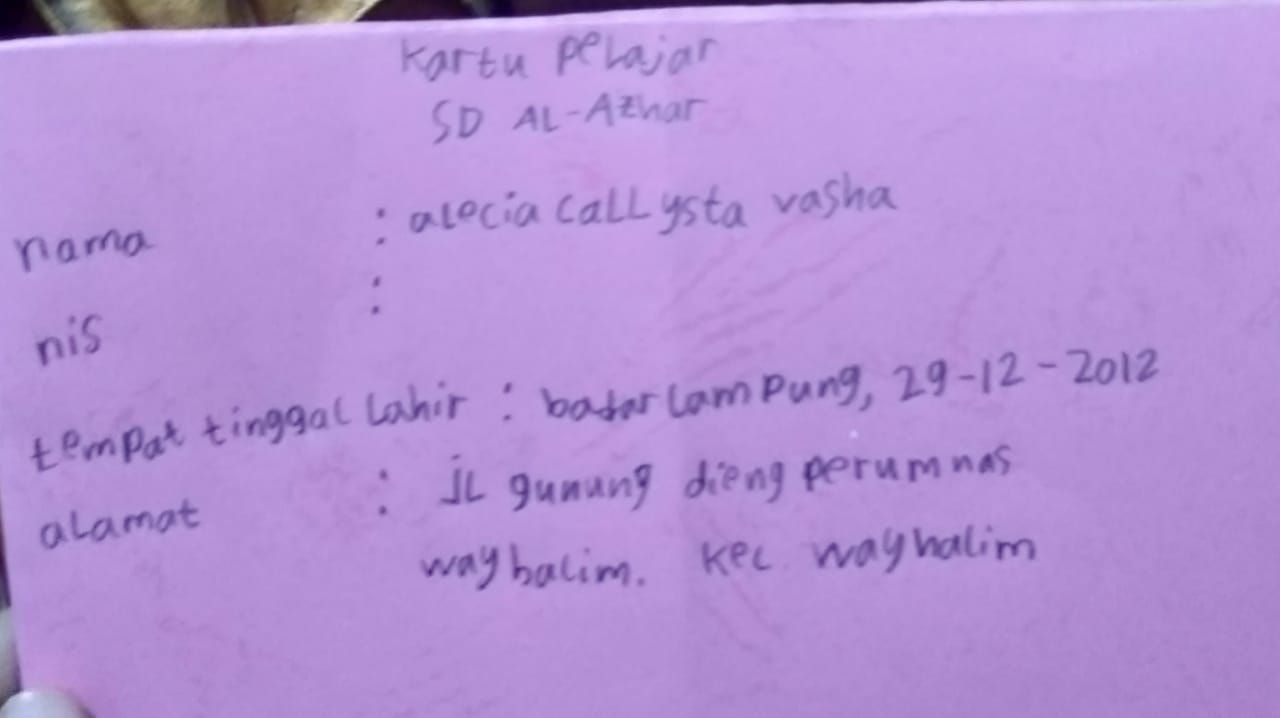 Kartu Pelajar
SD AL-Azhar
nama : alecia callysta vasha
nis :
tempat tinggal Lahir : badar lampung, 29-12-2012
alamat : jL gunung dieng perumnas
way halim. Kec wayhalim